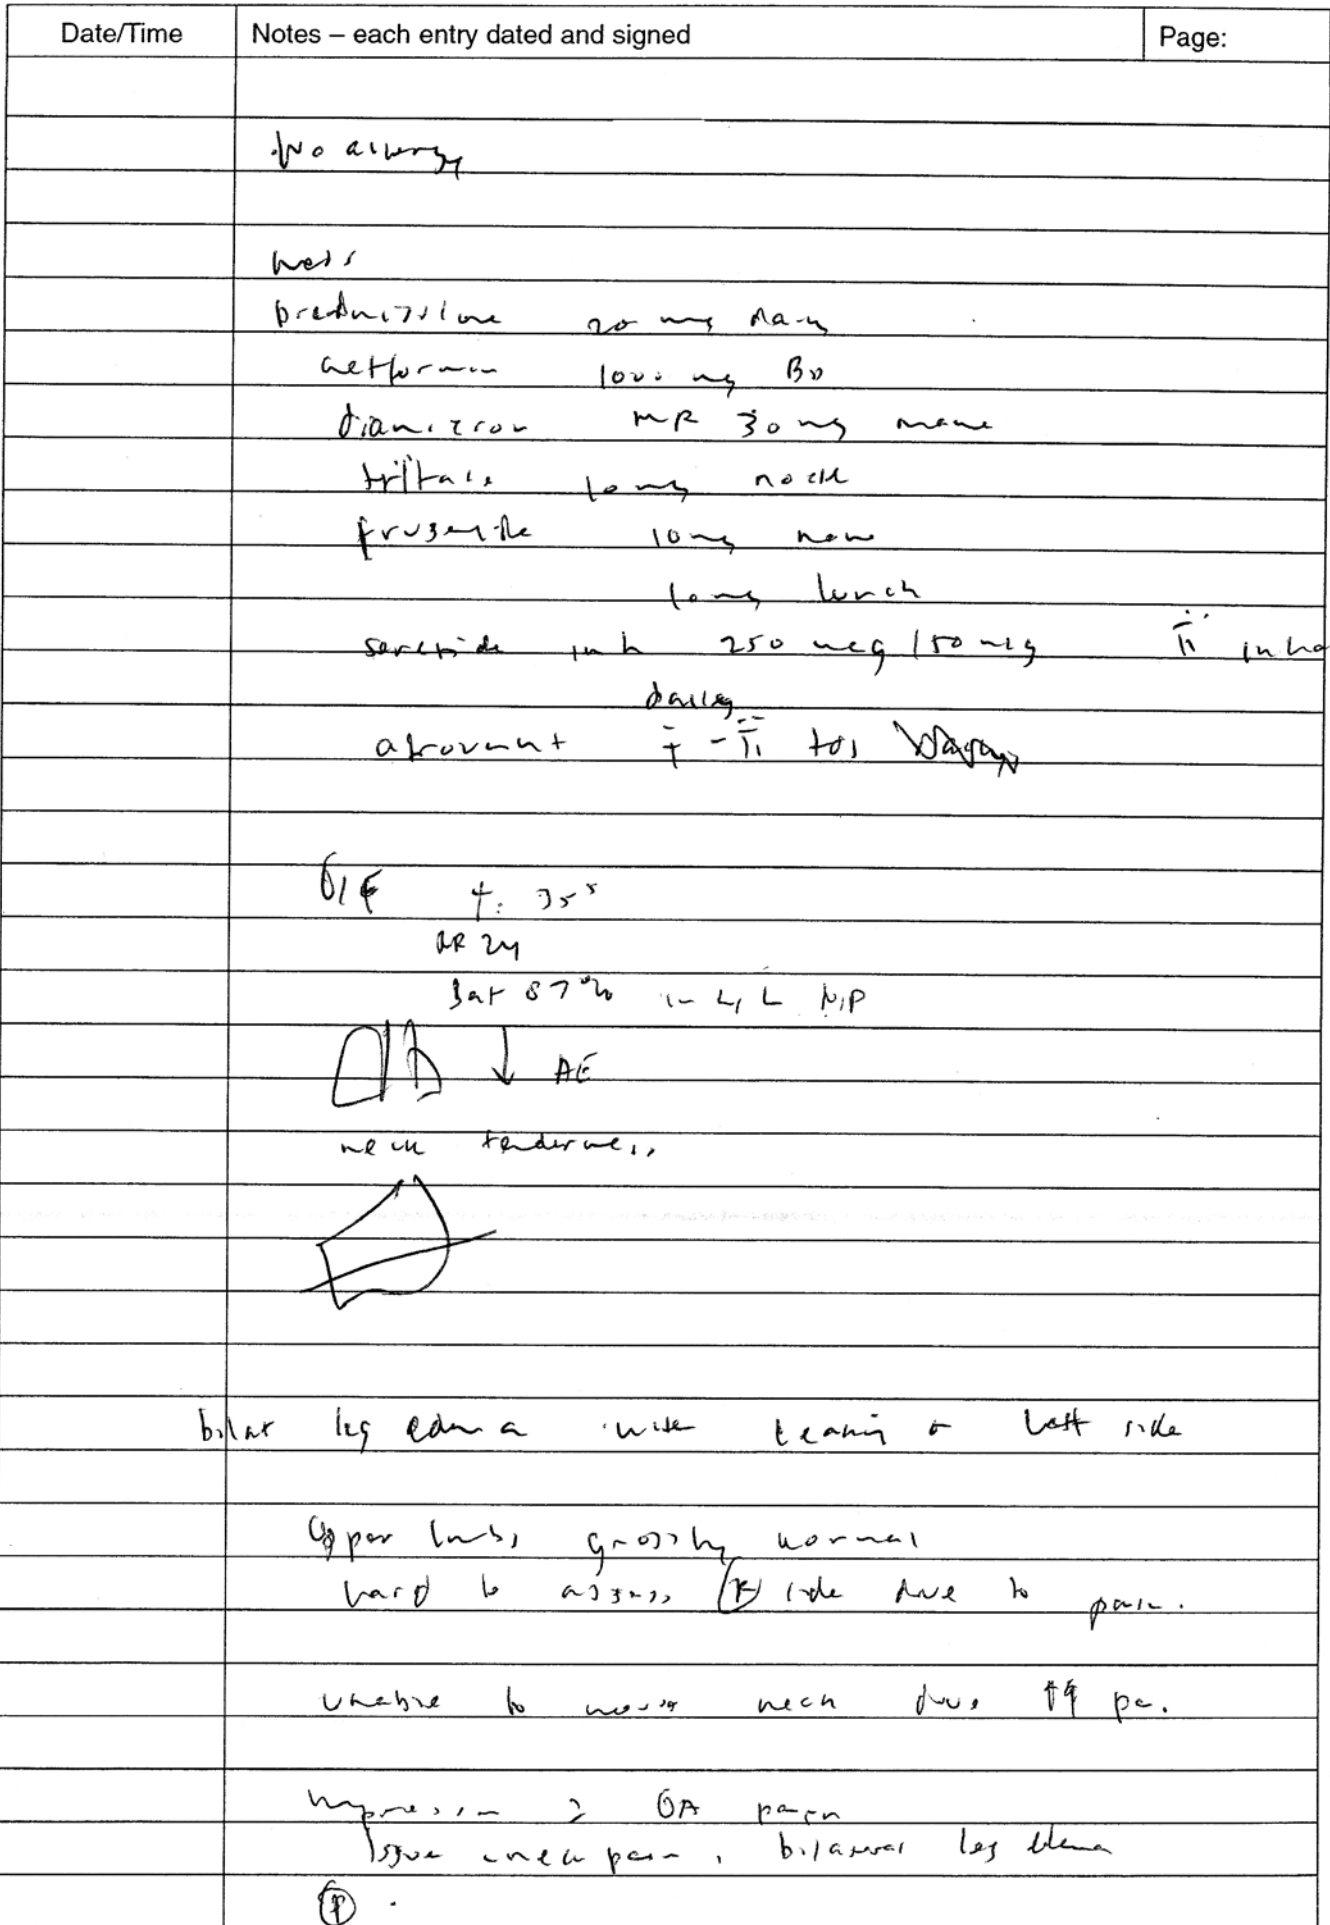 Date/Time Notes – each entry dated and signed Page:
No allergy
meds
prednisolone 20 mg daily
metformin 1000 mg BD
diamicron MR 30 mg mane
tritace 10 mg nocte
frusemide 10 mg mane
10 mg lunch
seretide inh 250 mcg / 50 mcg ii inha
daily
atrovent i - ii tds
O/E T: 35⁵
RR 24
Sat 87% in L N/P
↓ AE
neck tenderness
bilat leg edema with on left side
Upper limbs grossly normal
hard to assess (R) side due to pain.
unable to neck due ↑↑
Impression OA pain
Issue neck pain, bilateral leg edema
(P)